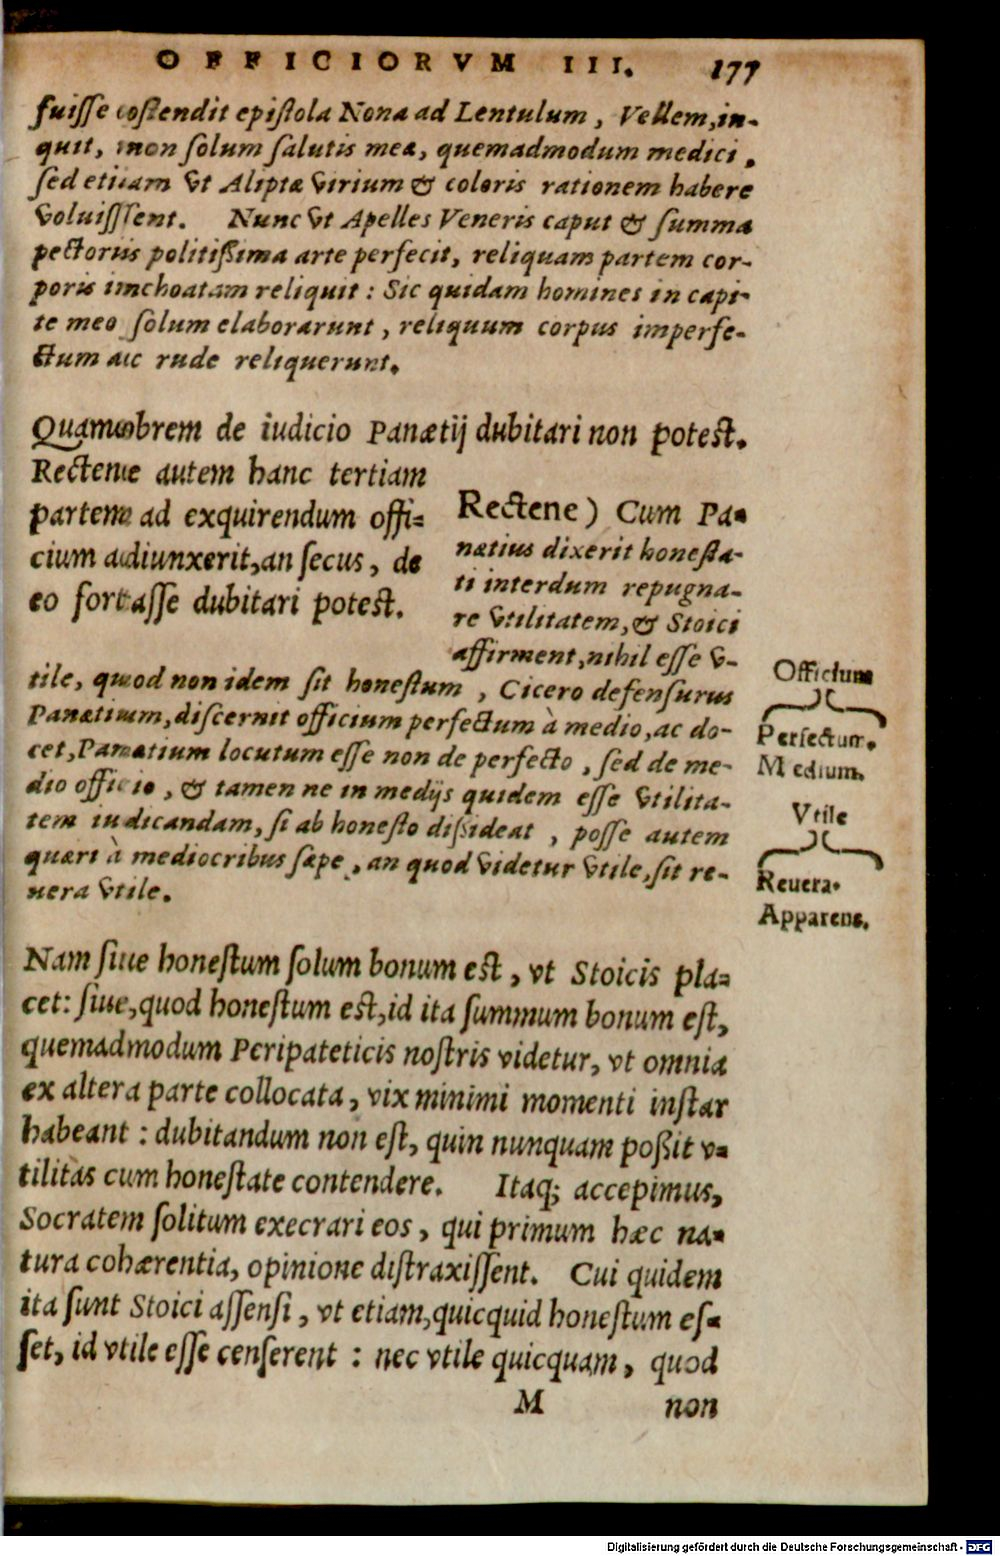 OFFICIORVM III. 177
fuiſſe oſtendit epiſtola Nona ad Lentulum, Vellem, in-
quit, non ſolum ſalutis meæ, quemadmodum medici,
ſed etiam vt Aliptæ virium & coloris rationem habere
voluiſſent. Nunc vt Apelles Veneris caput & ſumma
pectoris politißima arte perfecit, reliquam partem cor-
poris inchoatam reliquit: Sic quidam homines in capi-
te meo ſolum elaborarunt, reliquum corpus imperfe-
ctum ac rude reliquerunt.
Quamobrem de iudicio Panætij dubitari non poteſt.
Rectene autem hanc tertiam
partem ad exquirendum offi-
cium adiunxerit, an ſecus, de
eo fortaſſe dubitari poteſt.
Rectene) Cum Pa-
nætius dixerit honeſta-
ti interdum repugna-
re vtilitatem, & Stoici
affirment, nihil eſſe v-
tile, quod non idem ſit honeſtum, Cicero defenſurus
Panætium, diſcernit officium perfectum à medio, ac do-
cet, Panætium locutum eſſe non de perfecto, ſed de me-
dio officio, & tamen ne in medijs quidem eſſe vtilita-
tem iudicandam, ſi ab honeſto dißideat, poſſe autem
quæri à mediocribus ſæpe, an quod videtur vtile, ſit re-
uera vtile.
Officium
Perfectum.
Medium.
Vtile
Reuera.
Apparens.
Nam ſiue honeſtum ſolum bonum eſt, vt Stoicis pla-
cet: ſiue, quod honeſtum eſt, id ita ſummum bonum eſt,
quemadmodum Peripateticis noſtris videtur, vt omnia
ex altera parte collocata, vix minimi momenti inſtar
habeant: dubitandum non eſt, quin nunquam poßit v-
tilitas cum honeſtate contendere. Itaq; accepimus,
Socratem ſolitum execrari eos, qui primum hæc na-
tura cohærentia, opinione diſtraxiſſent. Cui quidem
ita ſunt Stoici aſſenſi, vt etiam, quicquid honeſtum eſ-
ſet, id vtile eſſe cenſerent: nec vtile quicquam, quod
M non
Digitalisierung gefördert durch die Deutsche Forschungsgemeinschaft - DFG